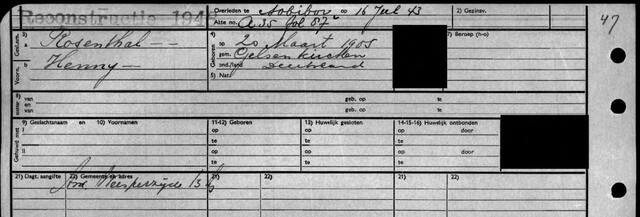 Reconstructie 194
Overleden te Sobibor op 16 Juli 43
Akte no. A 35 fol 87
2) Gezinsv.
47
3) Geslsn. Rosenthal
Voorn. Henny
4) op 20 Maart 1905
gem. Gelsenkirchen
ind./land Duitschland
5) Nat.
7) Beroep (h-o)
8) van geb. op te
en van geb. op te
9) Geslachtsnaam en 10) Voornamen
11-12) Geboren
13) Huwelijk gesloten
14-15-16) Huwelijk ontbonden
Gehuwd met
op op op door
te te
op op op door
te te
21) Dagt. aangifte
22) Gemeente en adres
21)
22)
21)
22)
Weesperzijde